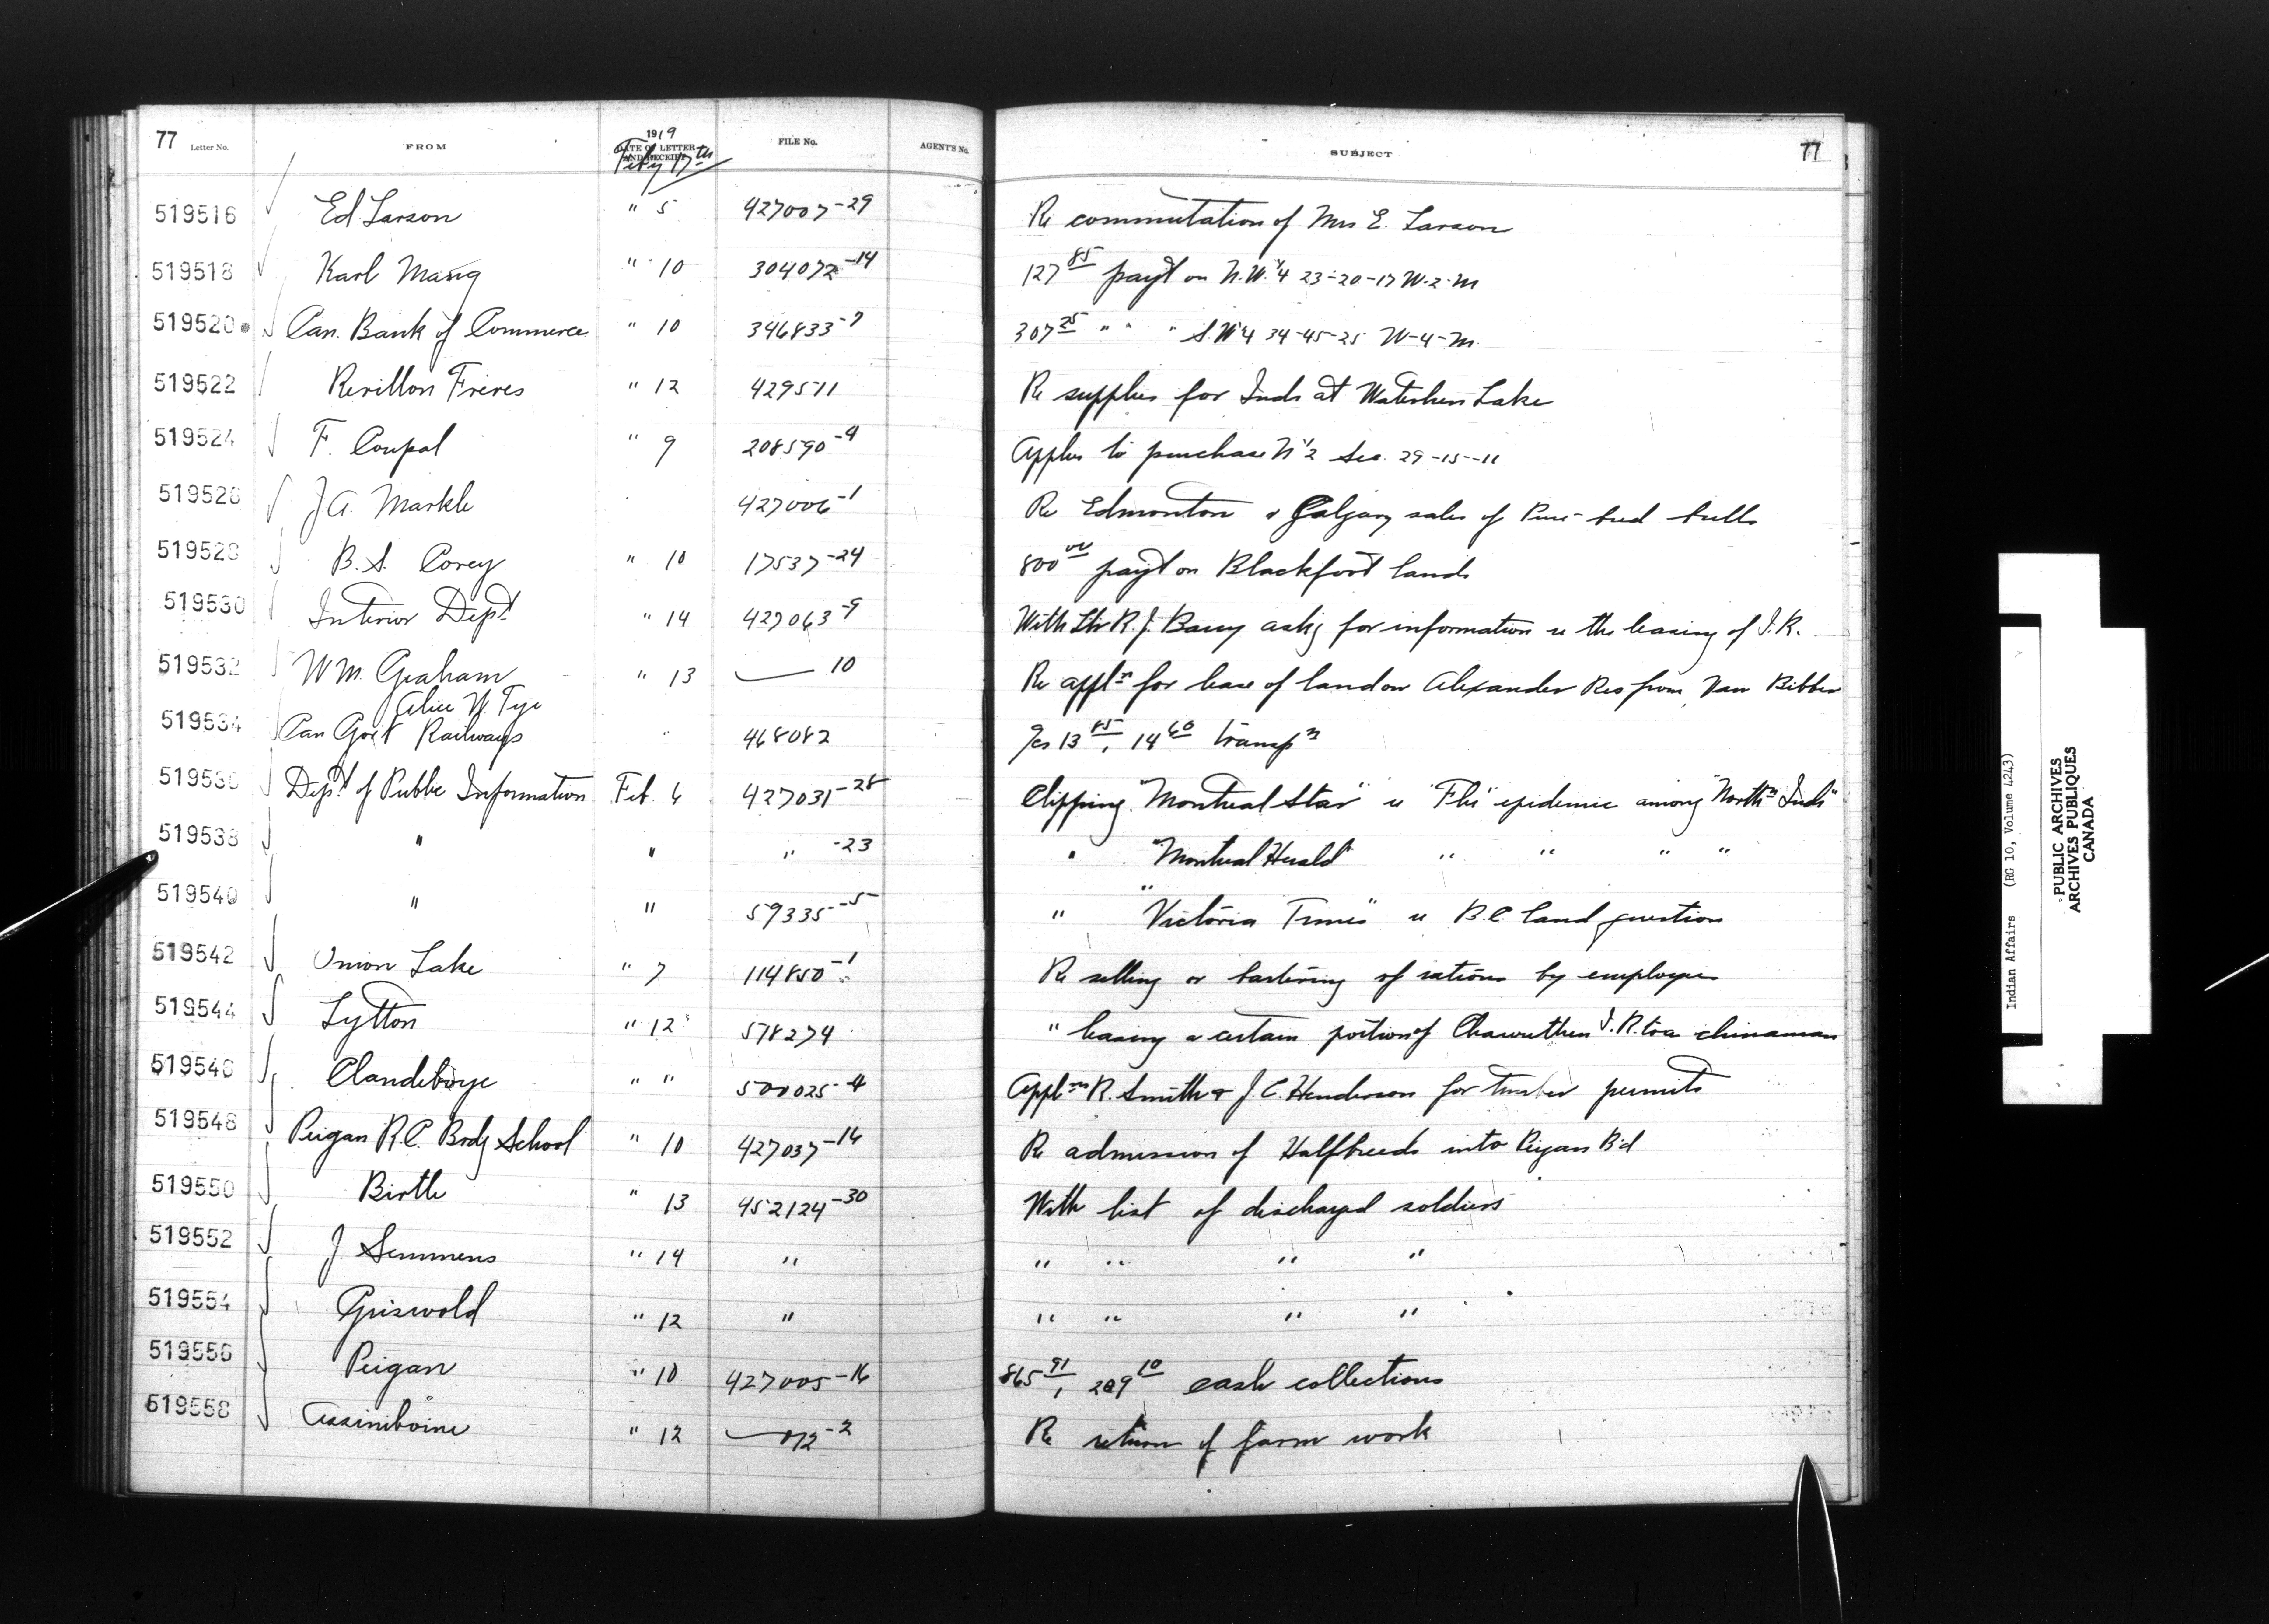 77 Letter No. FROM 1919 DATE OF LETTER AND RECEIPT FILE No. AGENT'S No. SUBJECT 77
Feby 17th
519516 Ed Larson " 5 427007-29 Re commutation of Mrs E. Larson
519518 Karl " 10 304072-14 127 85 payt on N.W. 1/4 23-20-17 W-2-M
519520 Can. Bank of Commerce " 10 346833-7 307 25 " " " S.W 1/4 34-45-25 W-4-M
519522 Revillon Freres " 12 429511 Re supplies for Inds at Waterhen Lake
519524 F. Coupal " 9 208590-4 Applies to purchase N 1/2 Sec. 29-15-11
519526 J A. Markle 427006-1 Re Edmonton & Calgary sales of Pure-bred bulls
519528 B. S. Corey " 10 17537-24 800 00 payt on Blackfoot lands
519530 Interior Dept " 14 427063-9 With Ltr R. J. Barry askg for information re the leasing of I.R.
519532 W M. Graham " 13 — 10 Re appln for lease of land on Alexander Res from Van Bibber
Alice N. Tye
519534 Can Govt Railways 468082 %s 13 85, 14 60 transpn
519536 Dept of Public Information Feb. 6 427031-28 Clipping "Montreal Star" re "Flu" epidemic among "Northn Inds"
519538 " " " -23 " "Montreal Herald" " " " "
519540 " " 59335-5 " "Victoria Times" re B.C. land question
519542 Onion Lake " 7 114850-1 Re selling or bartering of rations by employees
519544 Lytton " 12 578274 " leasing a certain portion of Chawuthen I.R. to a chinaman
519546 Clandeboye " " 500025-4 Applns R. Smith & J. C. Henderson for timber permits
519548 Peigan R.C. Brdg School " 10 427037-16 Re admission of Halfbreeds into Peigan Bd
519550 Birtle " 13 452124-30 With list of discharged soldiers
519552 J. Semmens " 14 " " " " "
519554 Griswold " 12 " " " " "
519556 Peigan " 10 427005-16 865 91, 209 10 cash collections
519558 Assiniboine " 12 — 012-2 Re return of farm work
Indian Affairs (RG 10, Volume 4243)
PUBLIC ARCHIVES
ARCHIVES PUBLIQUES
CANADA